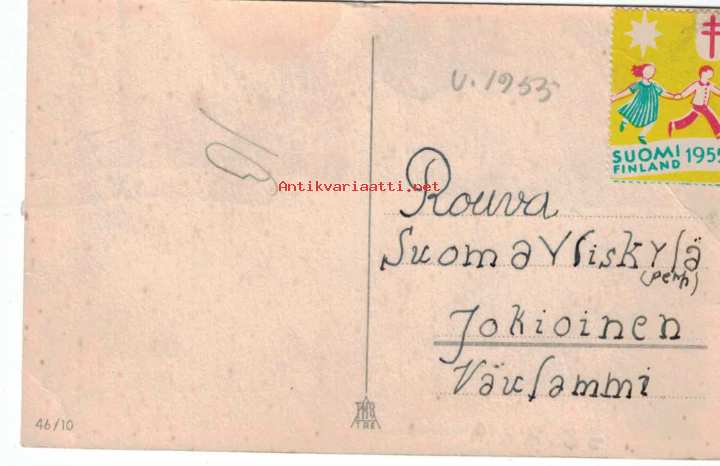 v. 1955
SUOMI 1955
FINLAND
Antikvariaatti.net
Rouva
Suoma Yliskylä
(perh)
Jokioinen
Väulammi
46/10
TRE